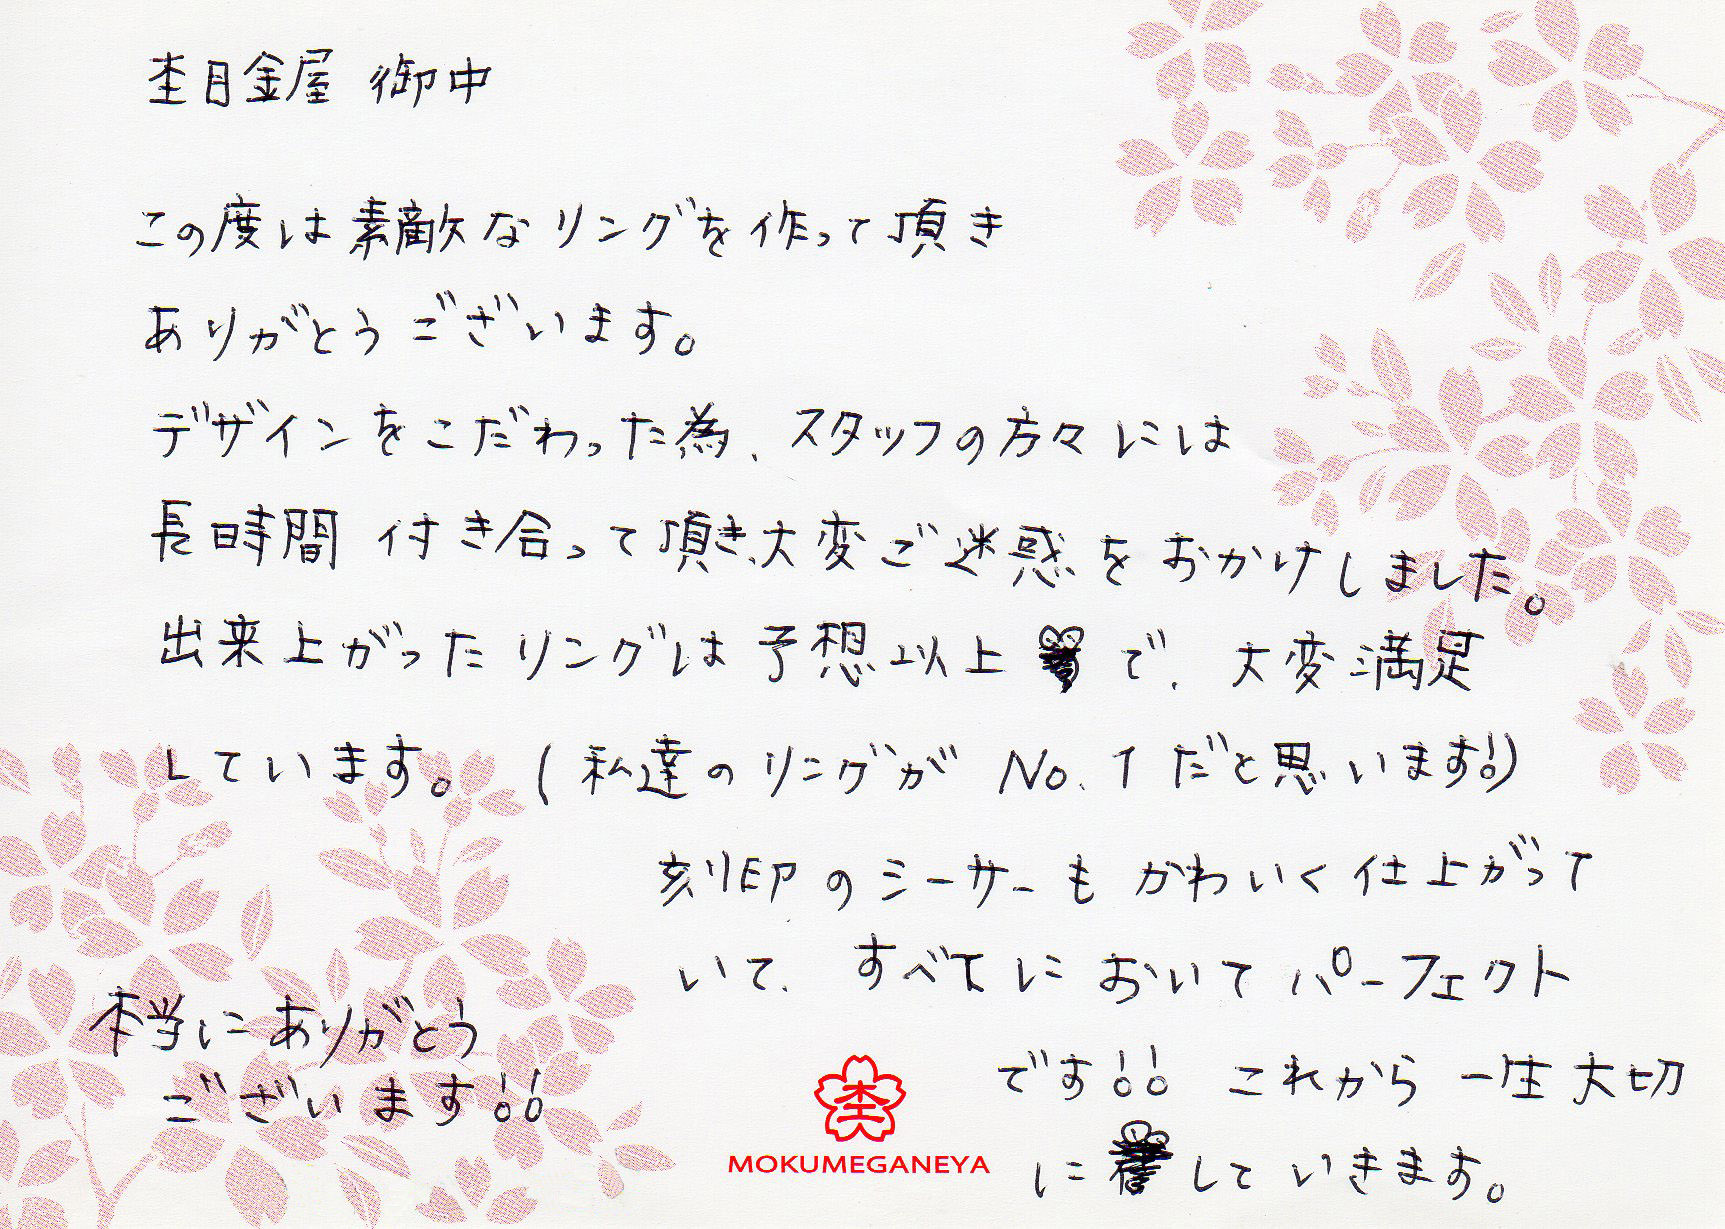 杢目金屋 御中
この度は素敵なリングを作って頂き
ありがとうございます。
デザインをこだわった為、スタッフの方々には
長時間 付き合って頂き、大変ご迷惑をおかけしました。
出来上がったリングは予想以上で、大変満足
しています。(私達のリングが No.1だと思います!)
刻印のシーサーもかわいく仕上がって
いて、すべてにおいてパーフェクト
です!! これから一生大切
にしていきます。
本当にありがとう
ございます!!
杢
MOKUMEGANEYA